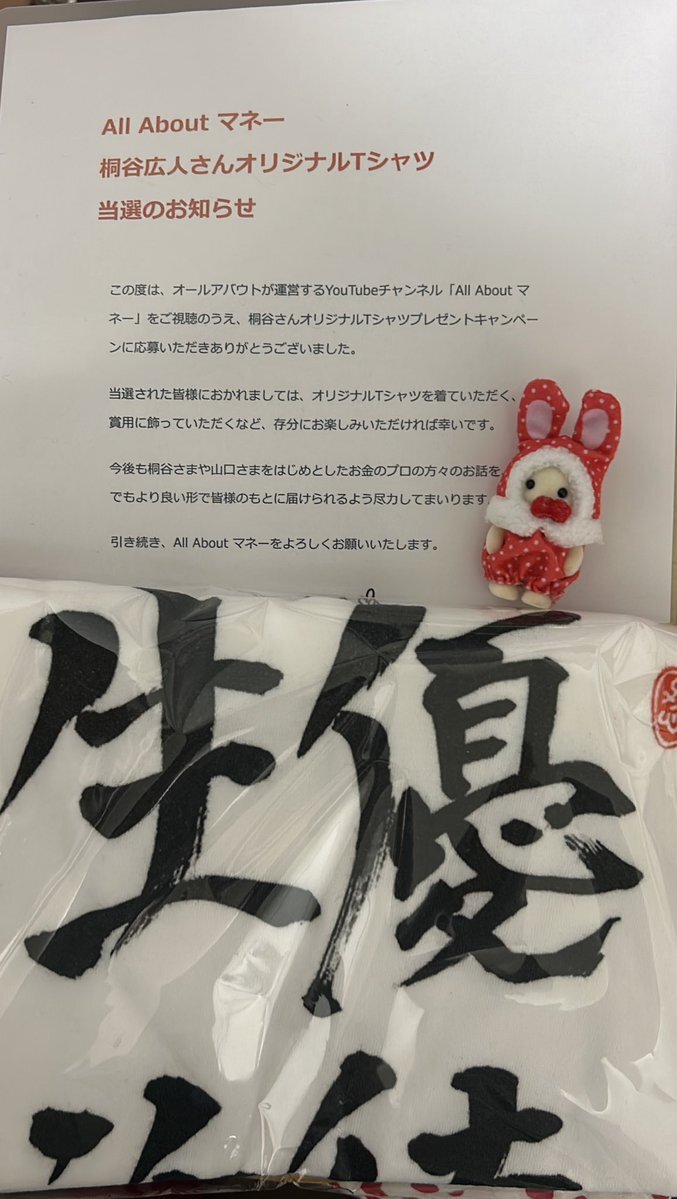 All About マネー
桐谷広人さんオリジナルTシャツ
当選のお知らせ
この度は、オールアバウトが運営するYouTubeチャンネル「All About マ
ネー」をご視聴のうえ、桐谷さんオリジナルTシャツプレゼントキャンペー
ンに応募いただきありがとうございました。
当選された皆様におかれましては、オリジナルTシャツを着ていただく、
賞用に飾っていただくなど、存分にお楽しみいただければ幸いです。
今後も桐谷さまや山口さまをはじめとしたお金のプロの方々のお話を
でもより良い形で皆様のもとに届けられるよう尽力してまいります
引き続き、All About マネーをよろしくお願いいたします。
優
生